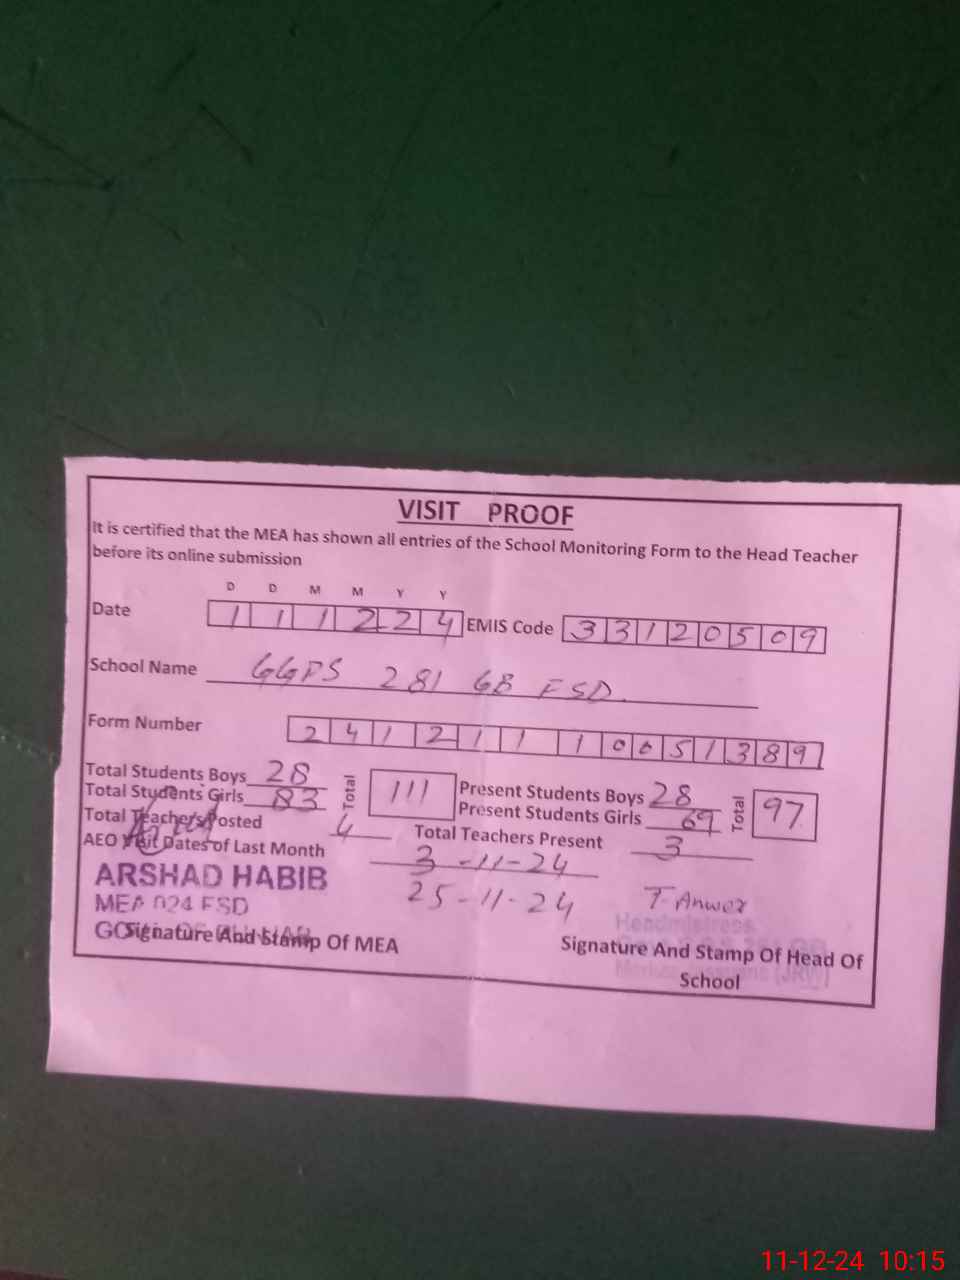 VISIT PROOF
It is certified that the MEA has shown all entries of the School Monitoring Form to the Head Teacher
before its online submission
D D M M Y Y
Date 1 1 1 2 2 4 EMIS Code 3 3 1 2 0 5 0 9
School Name GGPS 281 GB FSD.
Form Number 2 4 1 2 1 1 1 0 0 5 1 3 8 9
Total Students Boys 28 Total 111 Present Students Boys 28 Total 97
Total Students Girls 83 Present Students Girls 69
Total Teachers Posted 4 Total Teachers Present 3
AEO Visit Dates of Last Month 3-11-24
25-11-24
ARSHAD HABIB
MEA 024 FSD
T. Anwer
Headmistress
Signature And Stamp Of MEA
Signature And Stamp Of Head Of
School
11-12-24 10:15